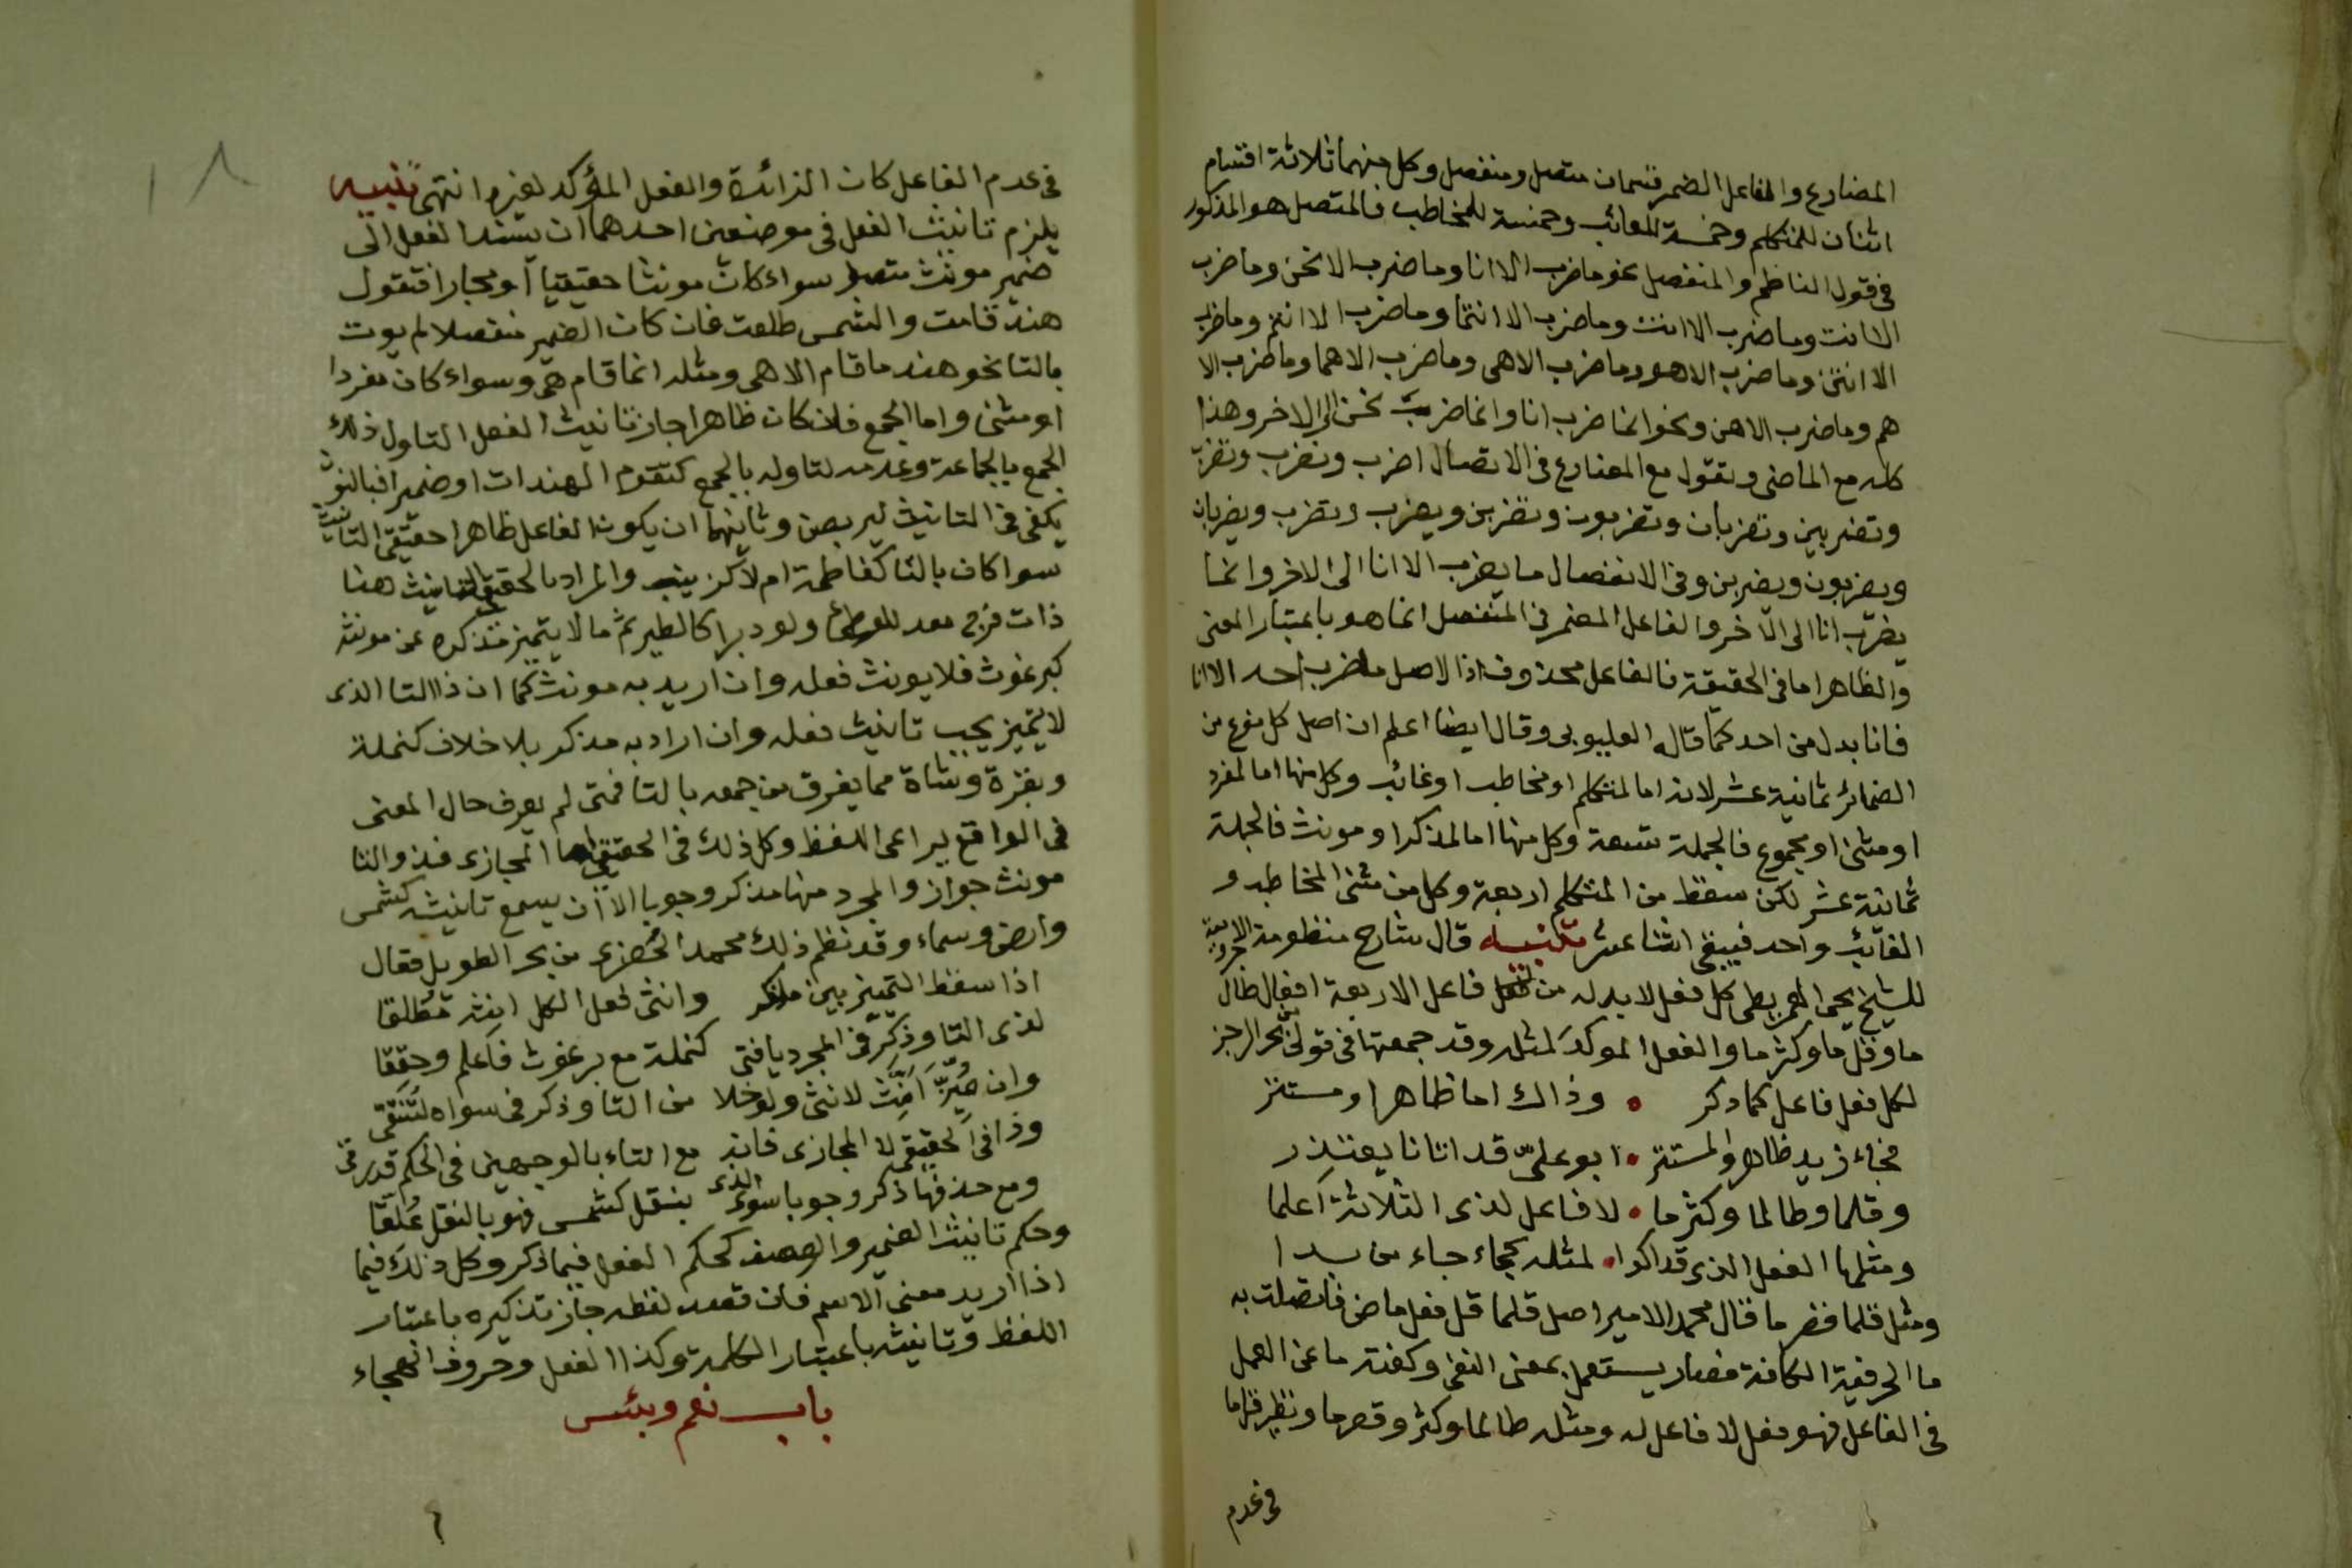 المضارع والفاعل الضمير قسمان متصل ومنفصل وكل منهما ثلاثة اقسام
اثنان للمتكلم وخمسة للغائب وخمسة للمخاطب فالمتصل هو المذكور
في قول الناظم والمنفصل نحو ما ضرب الا انا وما ضرب الا نحن وما ضرب
الا انت وما ضرب الا انت وما ضرب الا انتما وما ضرب الا انتم وما ضرب
الا انتن وما ضرب الا هو وما ضرب الا هى وما ضرب الا هما وما ضرب الا
هم وما ضرب الا هن ونحو انما ضرب انا وانما ضرب نحن الى الاخر وهذا
كله مع الماضى وتقول مع المضارع فى الاتصال اضرب ونضرب وتضرب
وتضربين وتضربان وتضربون وتضربن ويضرب وتضرب ويضربان
ويضربون ويضربن وفى الانفصال ما يضرب الا انا الى الاخر وانما
يضرب انا الى الاخر والفاعل المضمر فى المنفصل انما هو باعتبار المعنى
والظاهر اما فى الحقيقة فالفاعل محذوف اذ الاصل ما ضرب احد الا انا
فانا بدل من احد كما قاله القليوبى وقال ايضا اعلم ان اصل كل نوع من
الضمائر ثمانية عشر لانه اما لمتكلم او مخاطب او غائب وكل منها اما لمفرد
او مثنى او مجموع فالجملة تسعة وكل منها اما لمذكر او مونث فالجملة
ثمانية عشر لكن سقط من المتكلم اربعة وكل من مثنى المخاطب و
الغائب واحد فيبقى اثنا عشر تنبيه قال شارح منظومة الاجرومية
للشيخ يحيى العمريطى كل فعل لا بد له من فاعل الا اربعة افعال طال
ما وقل ما وكثر ما والفعل الموكد لمثله وقد جمعتها فى قولى بحر الرجز
لكل فعل فاعل كما ذكر • وذاك اما ظاهر او مستتر
فجاء زيد ظاهر والمستتر • ابو على قد اتانا يعتذر
وقلما وطالما وكثر ما • لا فاعل لذى الثلاثة اعلما
ومثلها الفعل الذى قد اكدا • لمثله كجاء جاء من بدا
ومثل قلما قصر ما قال محمد الامير اصل قلما قل فعل ماض فاتصلت به
ما الحرفية الكافة فصار يستعمل بمعنى النفى وكفته ما عن العمل
فى الفاعل فهو فعل لا فاعل له ومثله طالما وكثر وقصر ما ونظير قلما
فى عدم
فى عدم الفاعل كان الزائدة والفعل المؤكد لغيره انتهى تنبيه
يلزم تانيث الفعل فى موضعين احدهما ان يسند الفعل الى
ضمير مونث متصل سواء كان مونثا حقيقيا او مجازا فتقول
هند قامت والشمس طلعت فان كان الضمير منفصلا لم يوت
بالتا نحو هند ما قام الا هى ومثله انما قام هى وسواء كان مفردا
او مثنى واما الجمع فان كان ظاهرا جاز تانيث الفعل لتاول ذلك
الجمع بالجماعة وعدمه لتاوله بالجمع كتقوم الهندات او ضميرا فبالنون
يكفى فى التانيث ليربصن وثانيهما ان يكون الفاعل ظاهرا حقيقى التانيث
سوا كان بالتا كفاطمة ام لا كزينب والمراد بالحقيقى التانيث هنا
ذات فرج معد للوطئ ولو دبرا كالطير ثم ما لا يتميز مذكره عن مونثه
كبرغوث فلا يونث فعله وان اريد به مونث كما ان ذا التا الذى
لا يتميز يجب تانيث فعله وان اراد به مذكر بلا خلاف كنملة
وبقرة وشاة مما يفرق من جمعه بالتا فمتى لم يعرف حال المعنى
فى الواقع يراعى اللفظ وكل ذلك فى الحقيقى اما المجازى فذو التا
مونث جواز والمجرد منها مذكر وجوبا الا ان يسمع تانيثه كشمس
وارض وسماء وقد نظم ذلك محمد الخضرى من بحر الطويل فقال
اذا سقط التمييز بين مذكر وانثى لفعل الكل انث مطلقا
لذى التا وذكر فى المجرد يا فتى كنملة مع برغوث فاعلم وحققا
وان ميز انث لانثى ولو خلا من التا وذكر فى سواه لتتقى
وذا فى الحقيقى لا المجازى فانه مع التاء بالوجهين فى الحكم قد رقى
ومع حذفها ذكر وجوبا سوى الذى بنقل كشمس فهو بالنقل علقا
وحكم تانيث الضمير والوصف كحكم الفعل فيما ذكر وكل ذلك فيما
اذا اريد معنى الاسم فان قصد لفظه جاز تذكيره باعتبار
اللفظ وتانيثه باعتبار الكلمة وكذا الفعل وحروف الهجاء
باب نعم وبئس